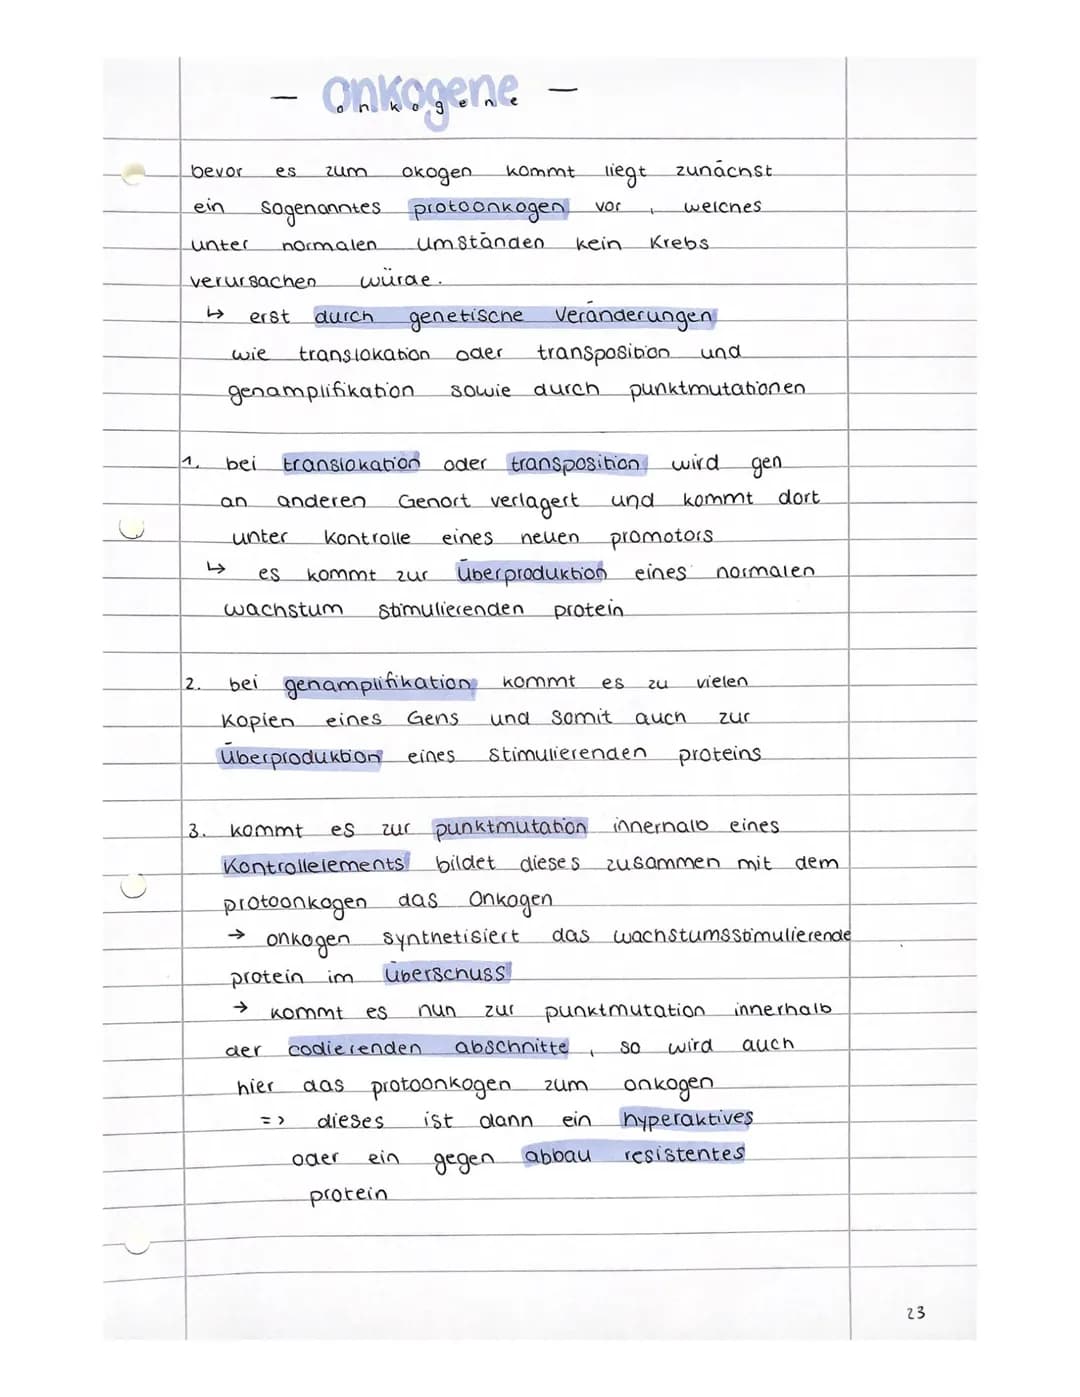 - Onkogene -
onkogene
bevor es zum okogen kommt liegt zunächst
ein sogenanntes protoonkogen vor, welches
unter normalen umständen kein Krebs
verursachen würde.
↳ erst durch genetische Veränderungen
wie translokation oder transposition und
genamplifikation sowie durch punktmutationen
1. bei translokation oder transposition wird gen
an anderen Genort verlagert und kommt dort
unter Kontrolle eines neuen promotors
↳ es kommt zur Überproduktion eines normalen
wachstum stimulierenden protein
2. bei genamplifikation kommt es zu vielen
Kopien eines Gens und somit auch zur
Überproduktion eines stimulierenden proteins
3. kommt es zur punktmutation innernalb eines
Kontrollelements bildet dieses zusammen mit dem
protoonkogen das Onkogen
→ onkogen synthetisiert das wachstumsstimulierende
protein im überschuss
→ kommt es nun zur punktmutation innerhalb
der codierenden abschnitte, so wird auch
hier das protoonkogen zum onkogen
=> dieses ist dann ein hyperaktives
oder ein gegen abbau resistentes
protein
23